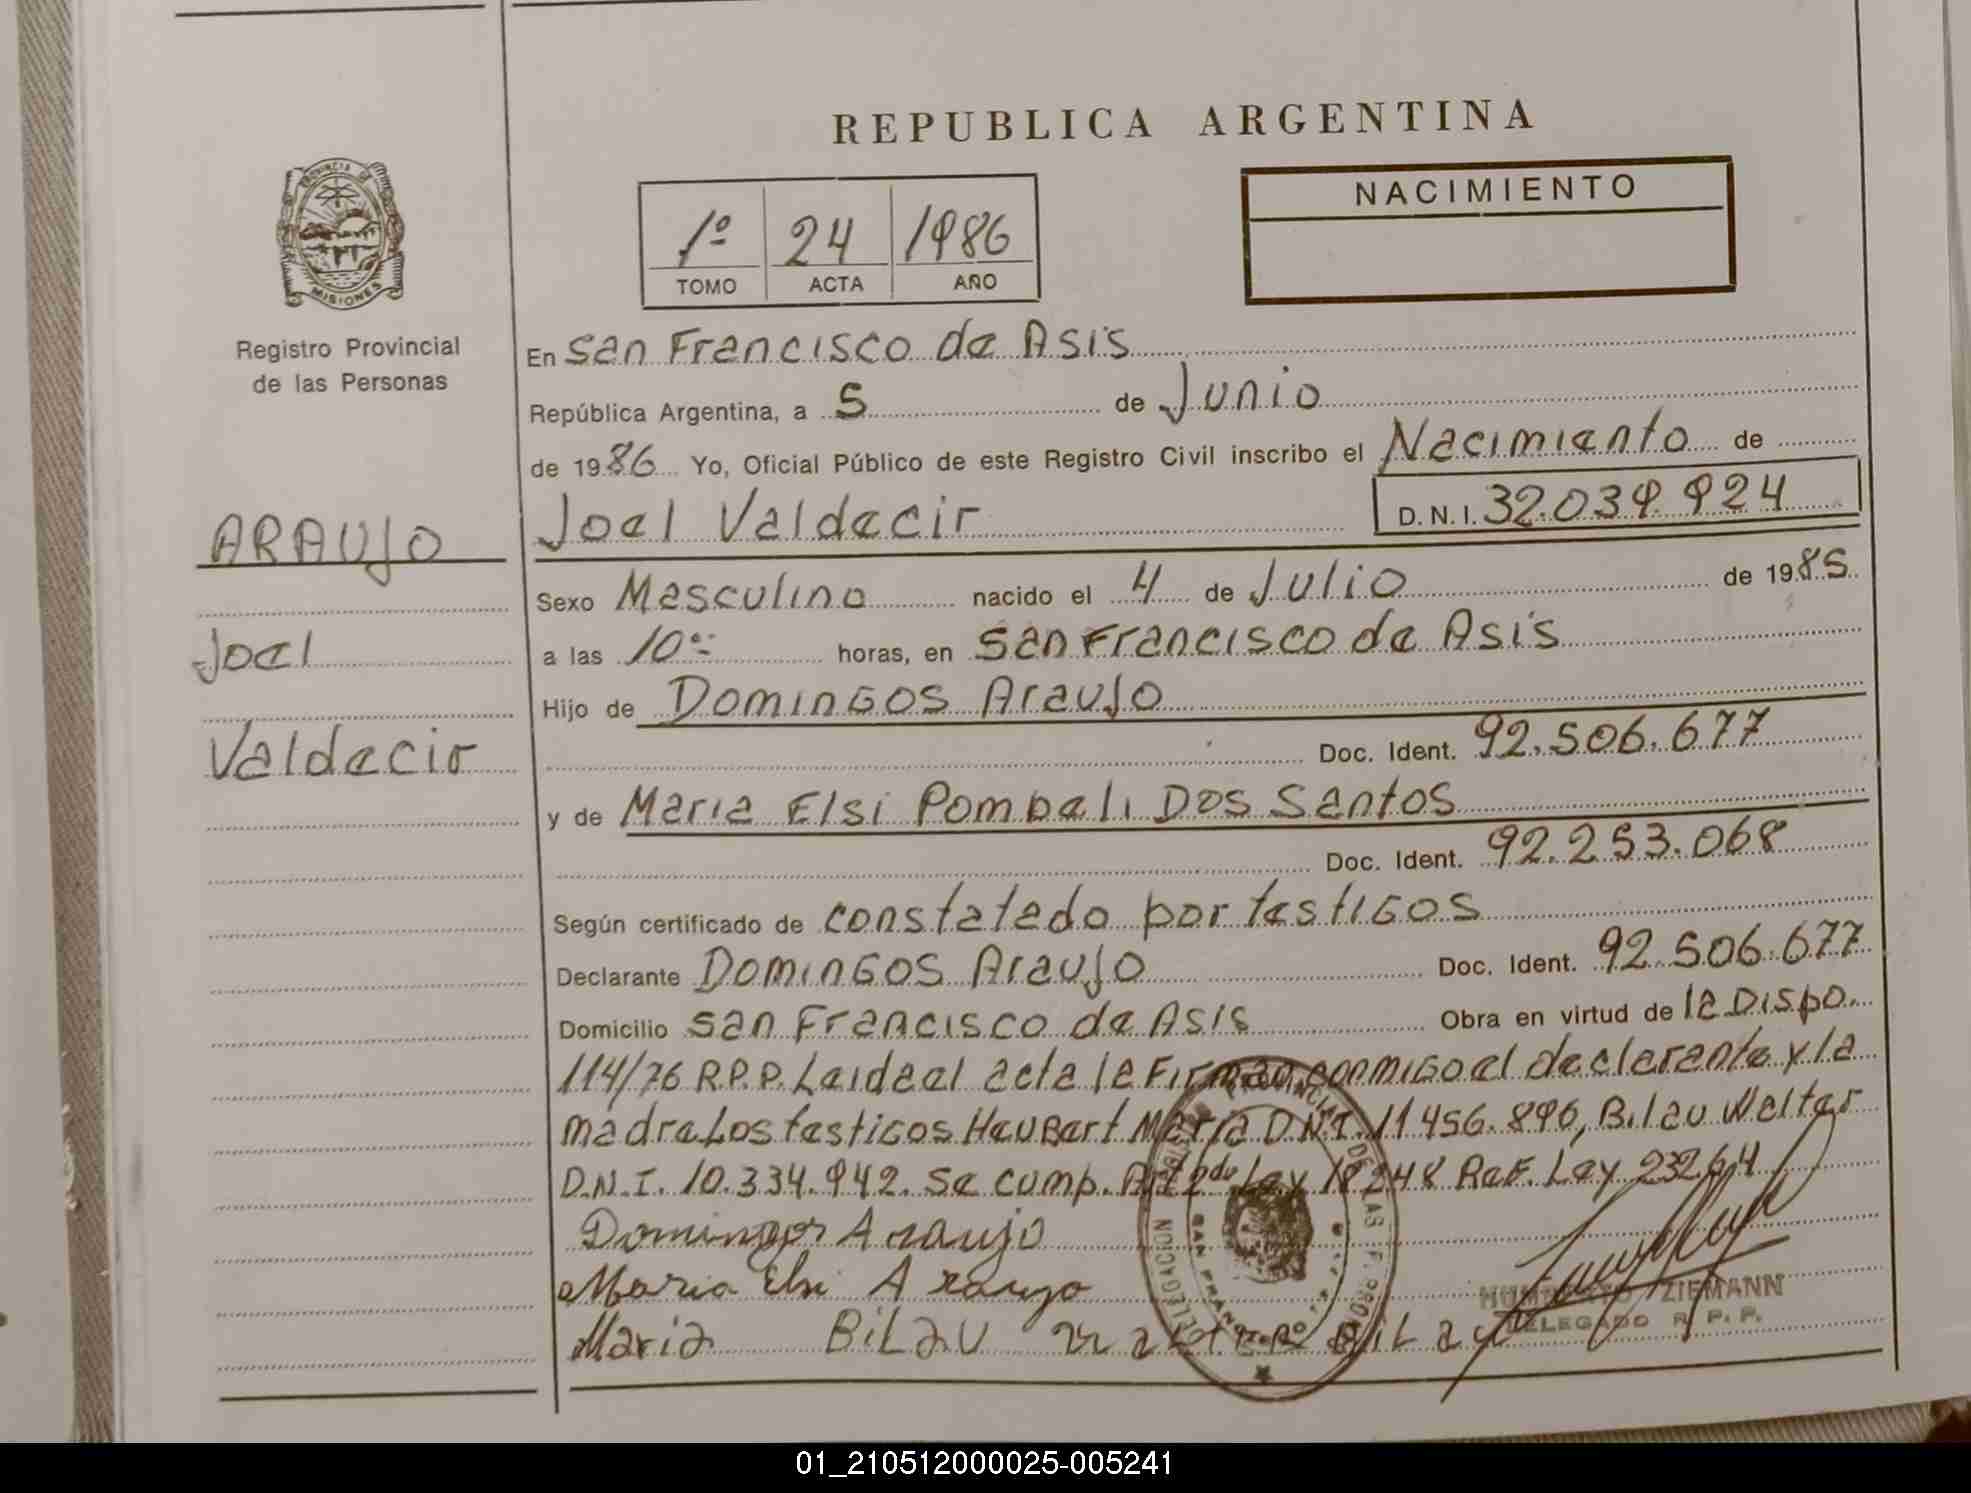 REPUBLICA ARGENTINA
PROVINCIA DE
MISIONES
Registro Provincial
de las Personas
ARAUJO
Joel
Valdecir
1º 24 1986
TOMO ACTA AÑO
NACIMIENTO
En San Francisco de Asis
República Argentina, a 5 de Junio
de 1986 Yo, Oficial Público de este Registro Civil inscribo el Nacimiento de
Joel Valdecir D.N.I. 32.039.924
Sexo Masculino nacido el 4 de Julio de 1985
a las 10 horas, en San Francisco de Asis
Hijo de Domingos Araujo
Doc. Ident. 92.506.677
y de Maria Elsi Pombali Dos Santos
Doc. Ident. 92.253.068
Según certificado de constatado por testigos
Declarante Domingos Araujo Doc. Ident. 92.506.677
Domicilio San Francisco de Asis Obra en virtud de la Dispo.
114/76 R.P.P. Leida el acta la Firman conmigo el declarante y la
madre Los testigos Haubert Maria D.N.I. 11456.896, Bilau Walter
D.N.I. 10.334.942. Se cump. Art 2do Ley 18248 Ref. Ley 23264
Domingos Araujo
Maria Elsi Araujo
Maria BiLau Walter BiLau
HUMBERTO ZIEMANN
DELEGADO R. P. P.
01_210512000025-005241